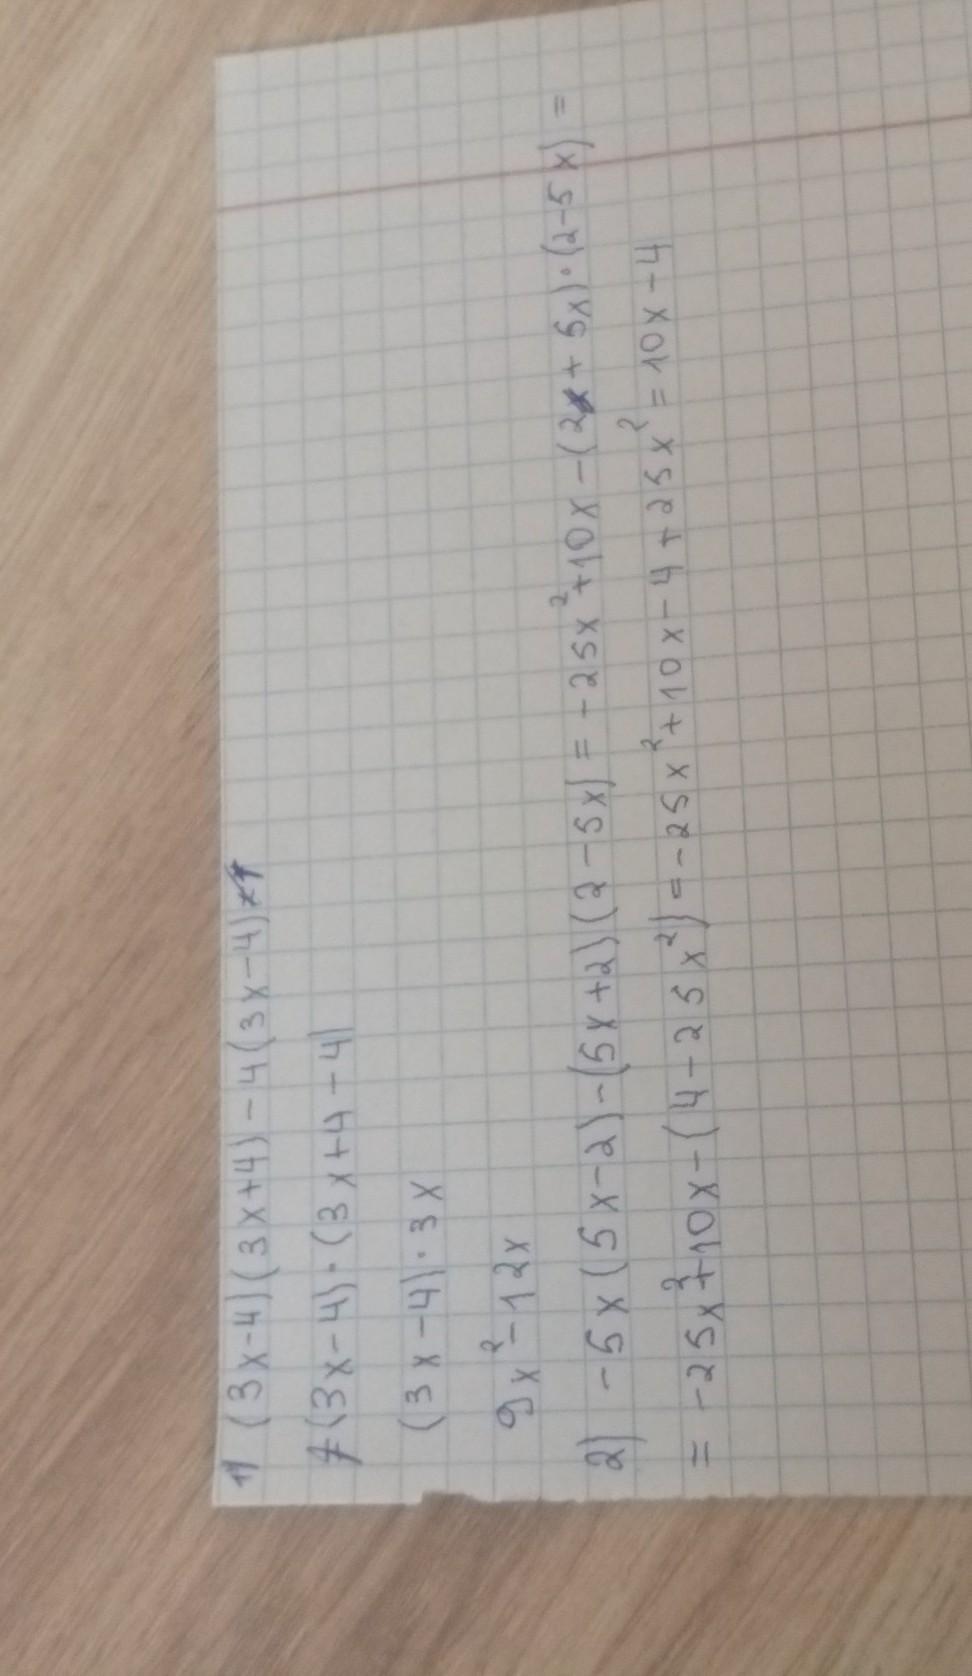 1) (3x-4)(3x+4)-4(3x-4)
(3x-4)·(3x+4-4)
(3x-4)·3x
9x²-12x
2) -5x(5x-2)-(5x+2)(2-5x)=-25x²+10x-(2+5x)·(2-5x)=
=-25x²+10x-(4-25x²)=-25x²+10x-4+25x²=10x-4